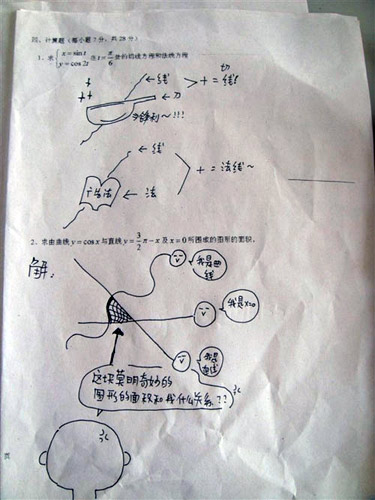 四、计算题（每小题7分，共28分）
1、求{x=sin t y=cos 2t 在t=π/6处的切线方程和法线方程
←线
←刀
> + = 切线
锋利～!!!
←线
←法
> + = 法线～
2、求由曲线y=cos x与直线y=3/2π-x及x=0所围成的图形的面积。
解：
我是曲线
我是x=0
我是直线
这块莫明奇妙的
图形的面积和我什么关系??
页